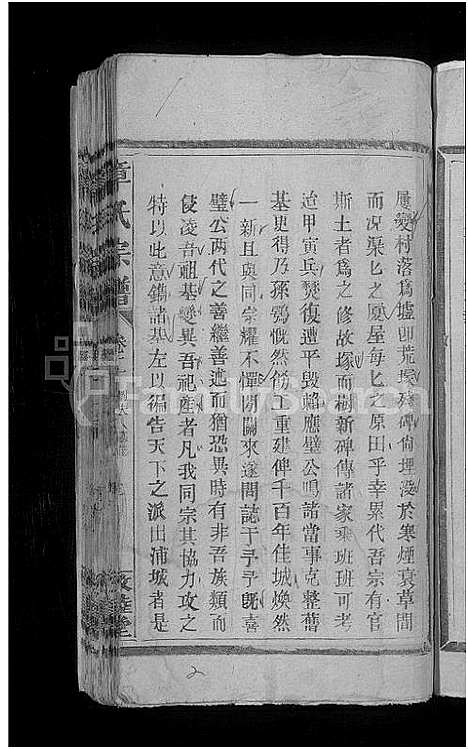 屢變村落為墟即荒垠殘碑尚埋沒於寒煙衰草間
而况渠匕之厦屋每匕之原田乎幸累代吾宗有官
斯土者爲之修故塚而樹新碑傳諸家乘班班可考
迨甲寅兵焚復遭平毁賴應璧公鳴諸當事克整舊
基更得乃孫鶚慨然飭工重建俾千百年佳城煥然
一新且與同宗耀不憚閒關來遂問誌于予予旣喜
璧公兩代之善繼善述而猶恐異時有非吾族類而
侵凌吾祖基變異吾祀産者凡我同宗其協力攻之
特以此意鐫諸墓左以徧告天下之派出浦城者是
章氏宗譜
卷之
FamilySearch
2